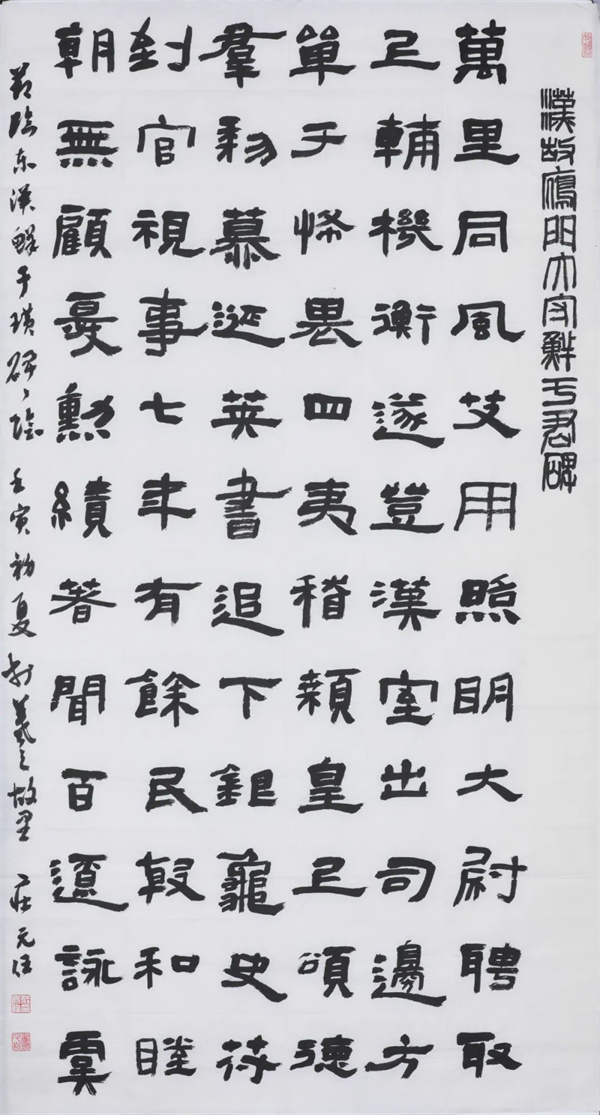 漢故鴈門大守鮮于君碑
萬里同風艾用照明大尉聘取
上輔機衡遂登漢室出司邊方
單于怖畏四夷稽顙皇上頌德
羣黎慕涎英書追下銀龜史符
到官視事七年有餘民殷和睦
朝無顧憂勳績著聞百遼詠虞
臨東漢鮮于璜碑 壬寅初夏於羲之故里 莊元